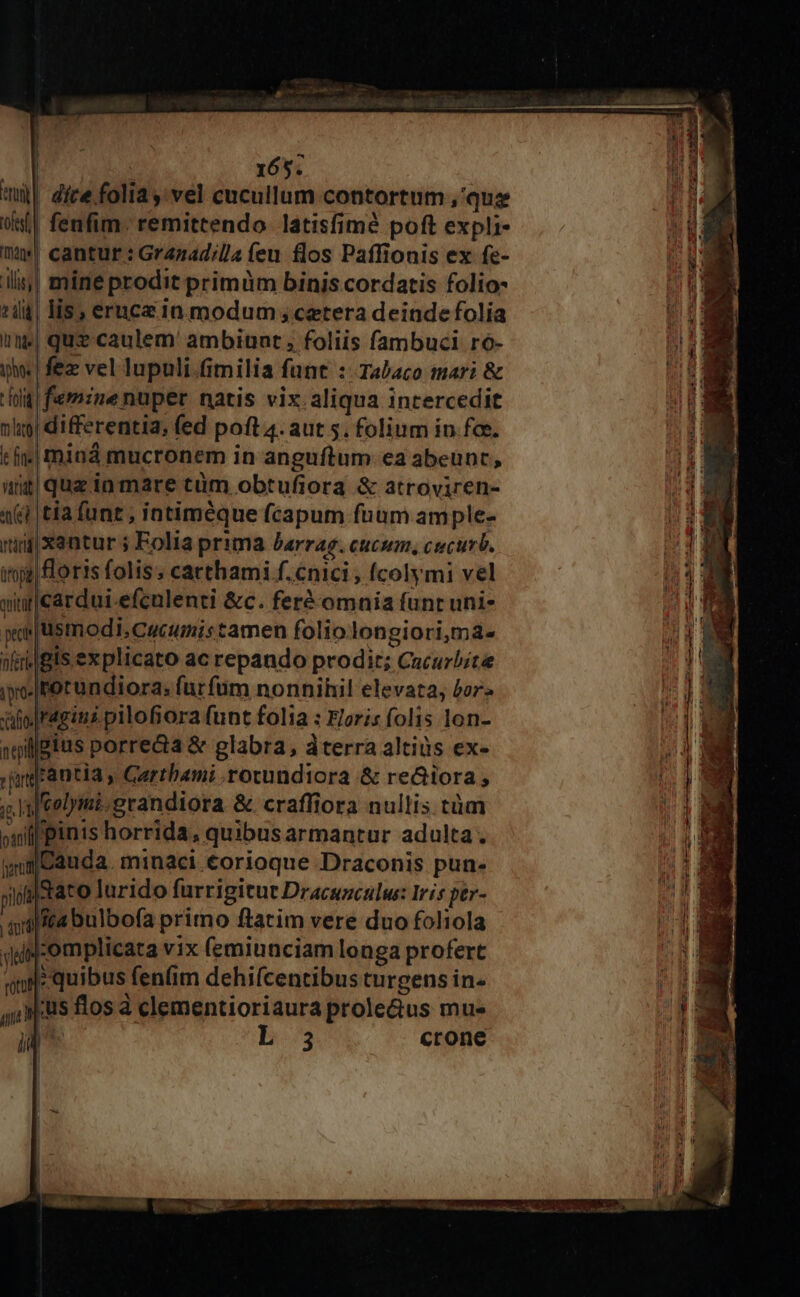 165.
dice folia, vel cucullum contortum, quæ
ſenſim remittendo latisſimè poſt expli-
cantur: Granadilla ſeu flos Paſſionis ex ſe-
mine prodit primùm binis cordatis folio-
lis, erucæ in modum, cætera deinde folia
quæ caulem ambiunt, foliis ſambuci ro-
ſez vel lupuli ſimilia ſunt: Tabaco mari &
femine nuper natis vix aliqua intercedit
differentia, ſed poſt 4. aut 5. folium in fœ.
minâ mucronem in anguſtum ea abeunt,
quæ in mare tùm obtuſiora & atroviren-
tia ſunt, intimèque ſcapum ſuum ample-
xantur; Folia prima barrag. cucum, cucurb.
floris ſolis, carthami ſ. cnici, ſcolymi vel
cardui eſculenti &c. ferè omnia ſunt uni-
usmodi, Cucumis tamen folio longiori, ma-
gis explicato ac repando prodit; Cucurbitæ
rotundiora, ſurſùm nonnihil elevata, bor-
ragini piloſiora ſunt folia: Floris ſolis lon-
gius porrecta & glabra, à terra altiùs ex-
tantia, Carthami rotundiora & rectiora,
ſcolymi grandiora & craſſiora nullis tùm
ſpinis horrida, quibus armantur adulta.
Cauda minaci corioque Draconis pun-
ctato lurido ſurrigitur Dracunculus: Iris per-
ſica bulboſa primo ſtatim vere duo foliola
complicata vix ſemiunciam longa profert
è quibus ſenſim dehiſcentibus turgens in-
tus flos à clementiori aura prolectus mu-
L 3 crone